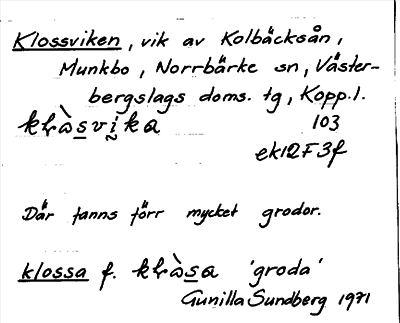 Klossviken, vik av Kolbäcksån,
Munkbo, Norrbärke sn, Väster-
bergslags doms. tg, Kopp. l.
kɬòsvika 103
ek12F3f
Där fanns förr mycket grodor.
klossa f. kɬòsa 'groda'
Gunilla Sundberg 1971